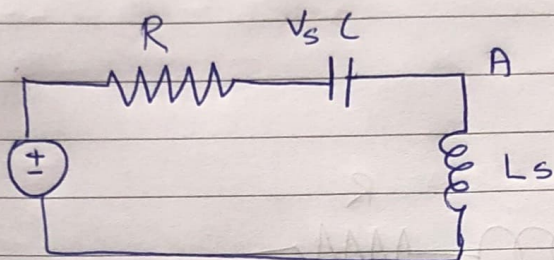 R Vs C A
±
Ls